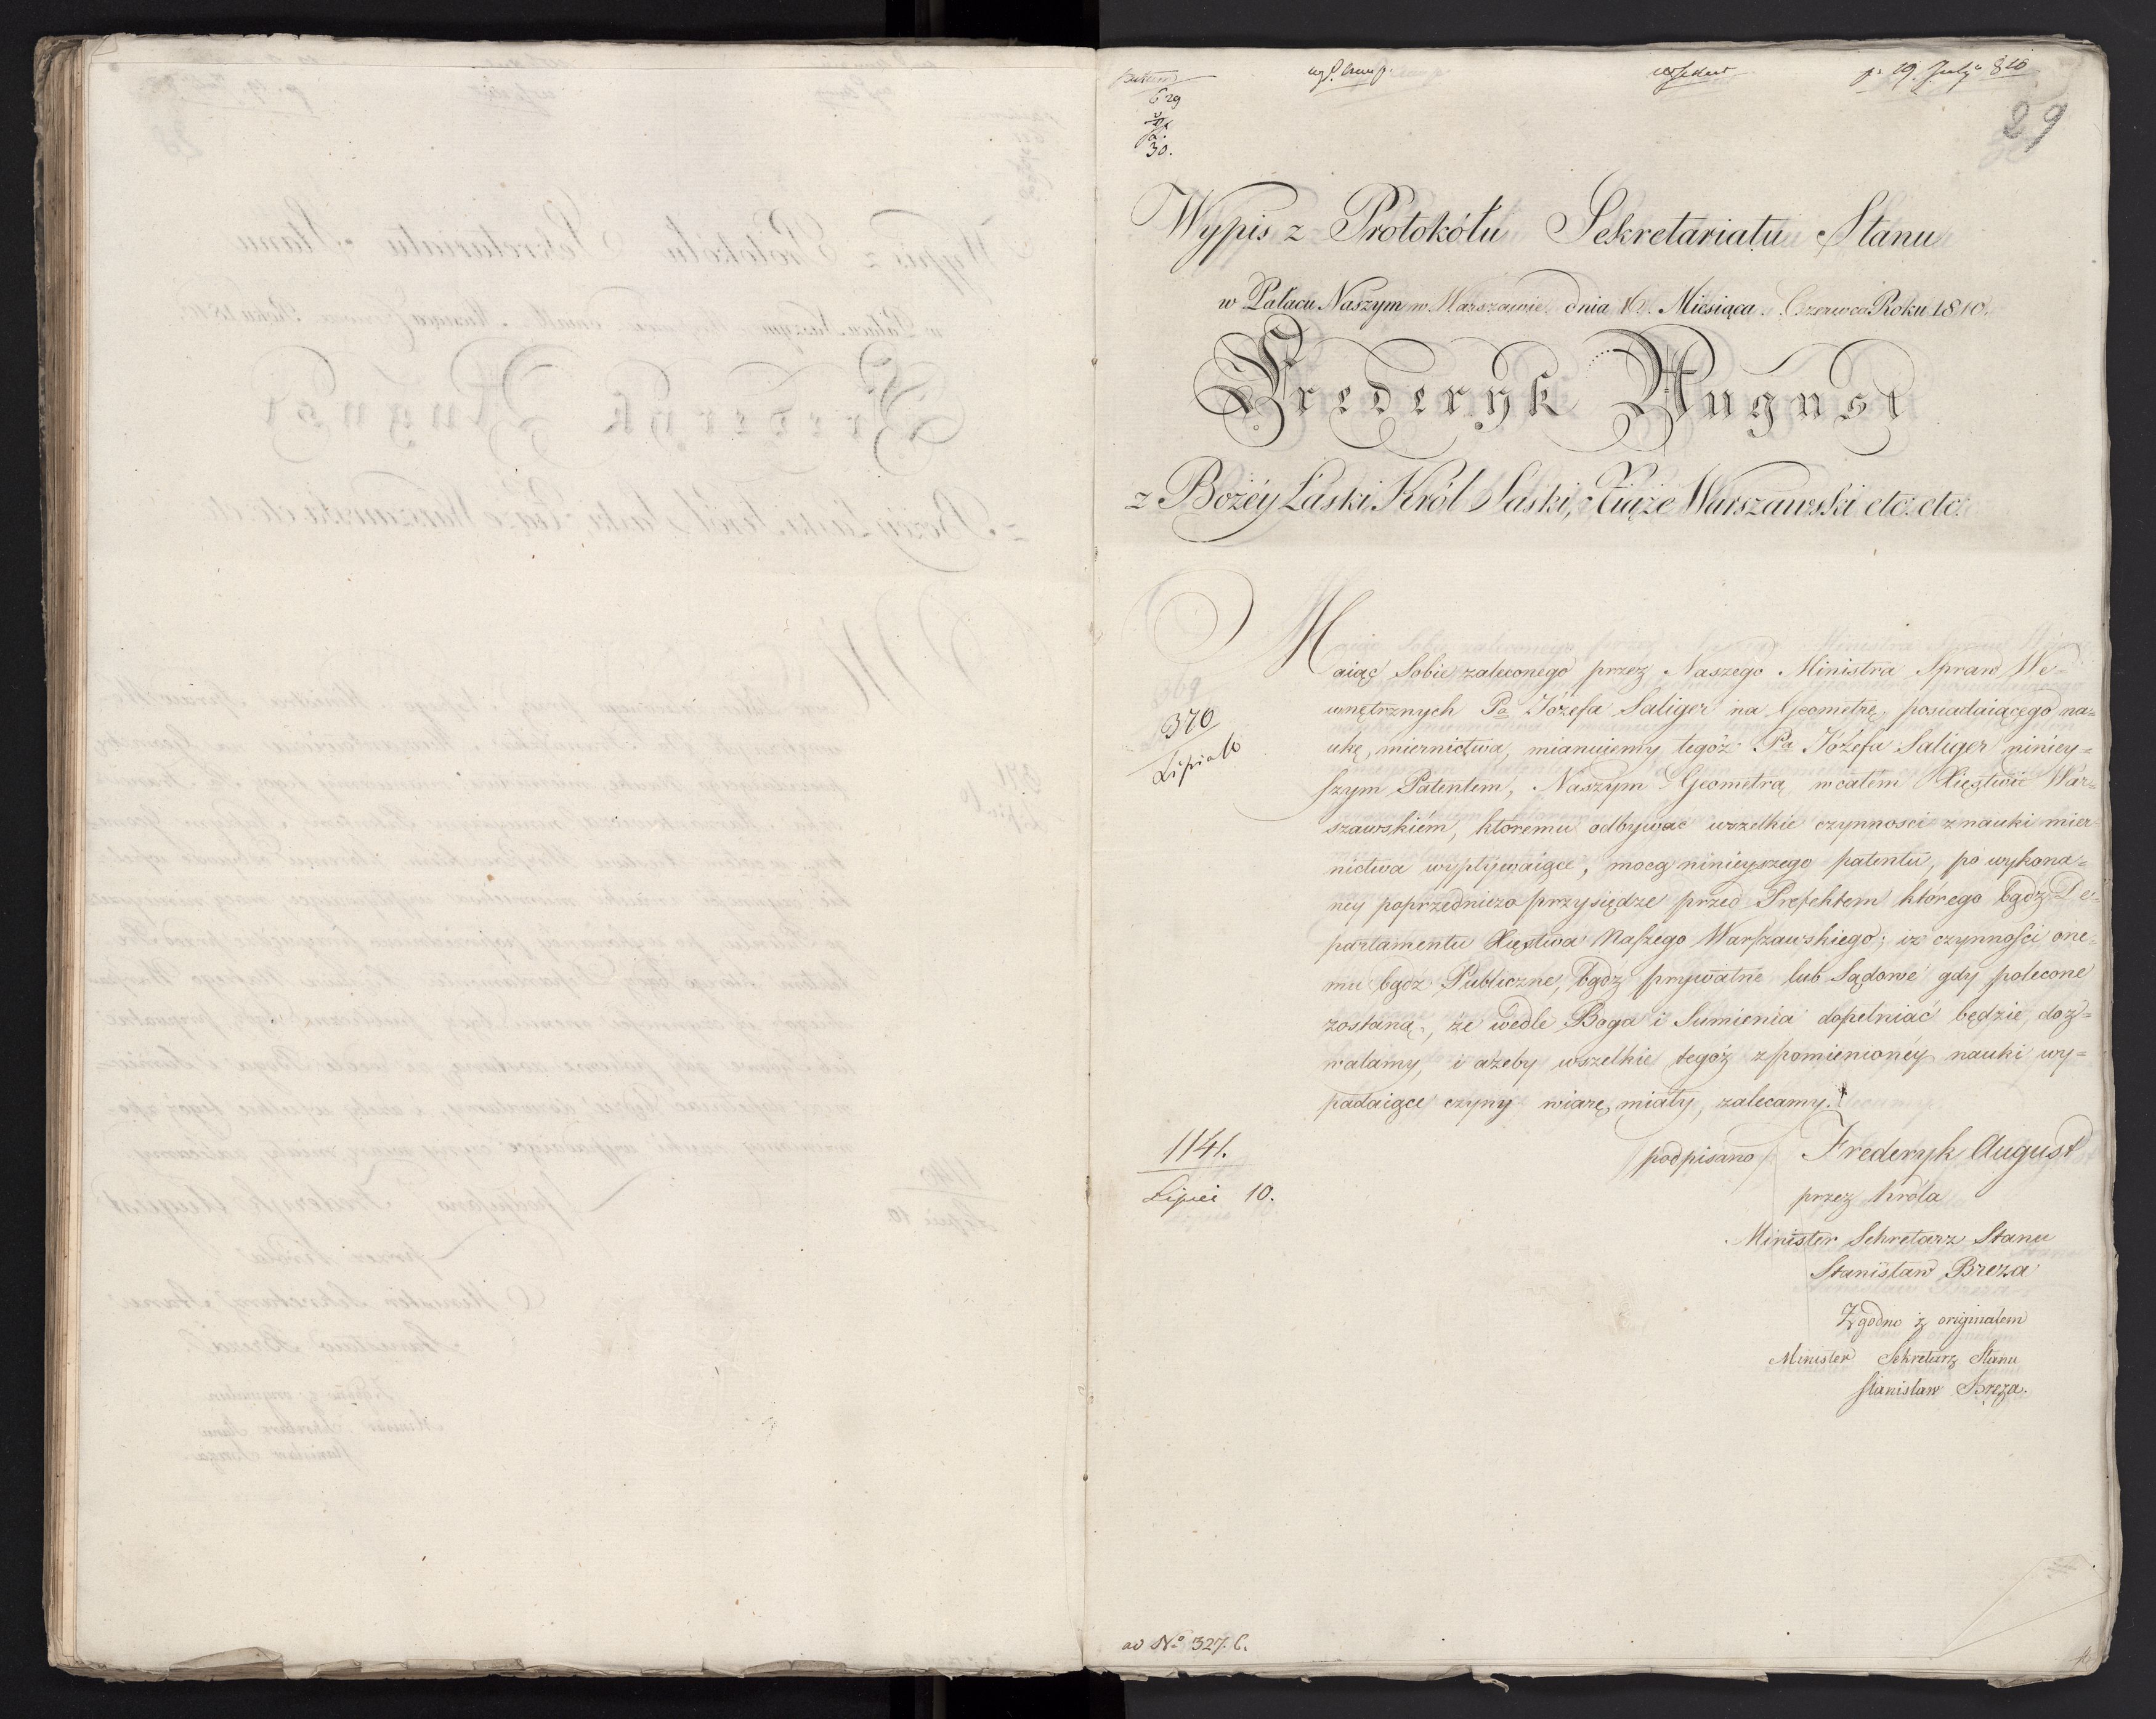 p. 19. July 810
29
30.
Wypis z Protokółu Sekretariatu Stanu
w Pałacu Naszym w Warszawie dnia Miesiąca Czerwca Roku 1810.
Fryderyk August
z Bożéy Łaski Król Saski, Xiąże Warszawski etc: etc:
Maiąc Sobie zaleconego przez Naszego Ministra Spraw We=
wnętrznych Pa Józefa Saliger na Geometrę, posiadaiącego na=
ukę miernictwa, mianuiemy tegóż Pa Józefa Saliger niniey=
szym Patentem, Naszym Geometrą w całém Xięstwie War=
szawskiém, ktoremu odbywać wszelkie czynnosci z nauki mier=
nictwa wypływaiące, mocą ninieyszego patentu, po wykona=
ney poprzedniczo przysiędze przed Prefektem którego bądź De=
partamentu Xięstwa Naszego Warszawskiego; iż czynności one=
mu bądź Publiczne, bądź prywatne lub Sądowe gdy polecone
zostaną, że wedle Boga i Sumienia dopełniać będzie, doz=
walamy, i ażeby wszelkie tegóż z pomienionéy nauki wy=
padaiące czyny wiarę miały, zalecamy.
370
Lipia
1141.
Lipiec 10.
/podpisano/ Frederyk August
przez Króla
Minister Sekretarz Stanu
Stanisław Breza
Zgodno z originałem
Minister Sekretarz Stanu
Stanisław Breza.
ad No 327. C.